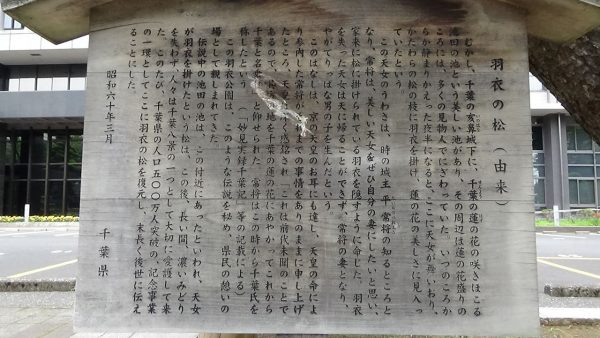 羽衣の松（由来）
むかし、千葉の亥鼻城下に、千葉の蓮の花の咲きほこる
池田の池という美しい池があり、その周辺は蓮の花盛りの
ころには、多くの見物人でにぎわっていた。いつのころか
らか静まりかえった夜半になると、ここに天女が舞いおり、
かたわらの松の枝に羽衣を掛け、蓮の花の美しさに見入っ
ていたという。
この天女のうわさは、時の城主 平 常将の知るところと
なり、常将は、美しい天女をぜひ自分の妻にしたいと思い、
家来に松に掛けられている羽衣を隠すように命じた。羽衣
を失った天女は天に帰ることができず、常将の妻となり、
やがてりっぱな男の子を生んだという。
このはなしは、京の天皇のお耳にも達し、天皇の命によ
り参内した常将が、
までの事情をありのままに申し上げ
たところ、天
く
され「これは前代未聞のことで
あるので、
地を千葉の蓮の花にあやかってこれから
千葉と名
と仰せられた。常将はこの時から千葉氏を
称したという（「妙見実録千葉記」等の記載による）
この羽衣公園は、このような伝説を秘め、県民の憩いの
場として親しまれてきた。
伝説中の池田の池は、この付近にあったといわれ、天女
が羽衣を掛けたという松は、この後、長い間、濃いみどり
を失わず人々は千葉八景の一つとして大切に愛護して来
た。このたび、千葉県の人口五〇〇万人突破の、記念事業
の一環としてここに羽衣の松を復元し、末長く後世に伝え
ることにした。
昭和六十年三月
千葉県